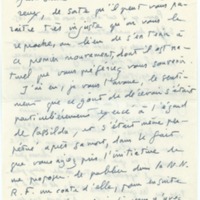 reux, de sorte qu'il peut vous pa-
raître très injuste qu'on vous le
reproche, au lieu de s'en tenir à
ce premier mouvement, dont il est na-
turel que vous préfériez vous souvenir.
J'ai eu, je vous l'avoue, le senti-
ment que ce goût de desservir s'était
particulièrement exercé à l'égard
de Cassilda, et s'était même per-
pétué après sa mort, dans le fait
que vous ayez pris l'initiative de
me proposer de publier dans la N.N.
R.F. un conte d'elle, pour ensuite